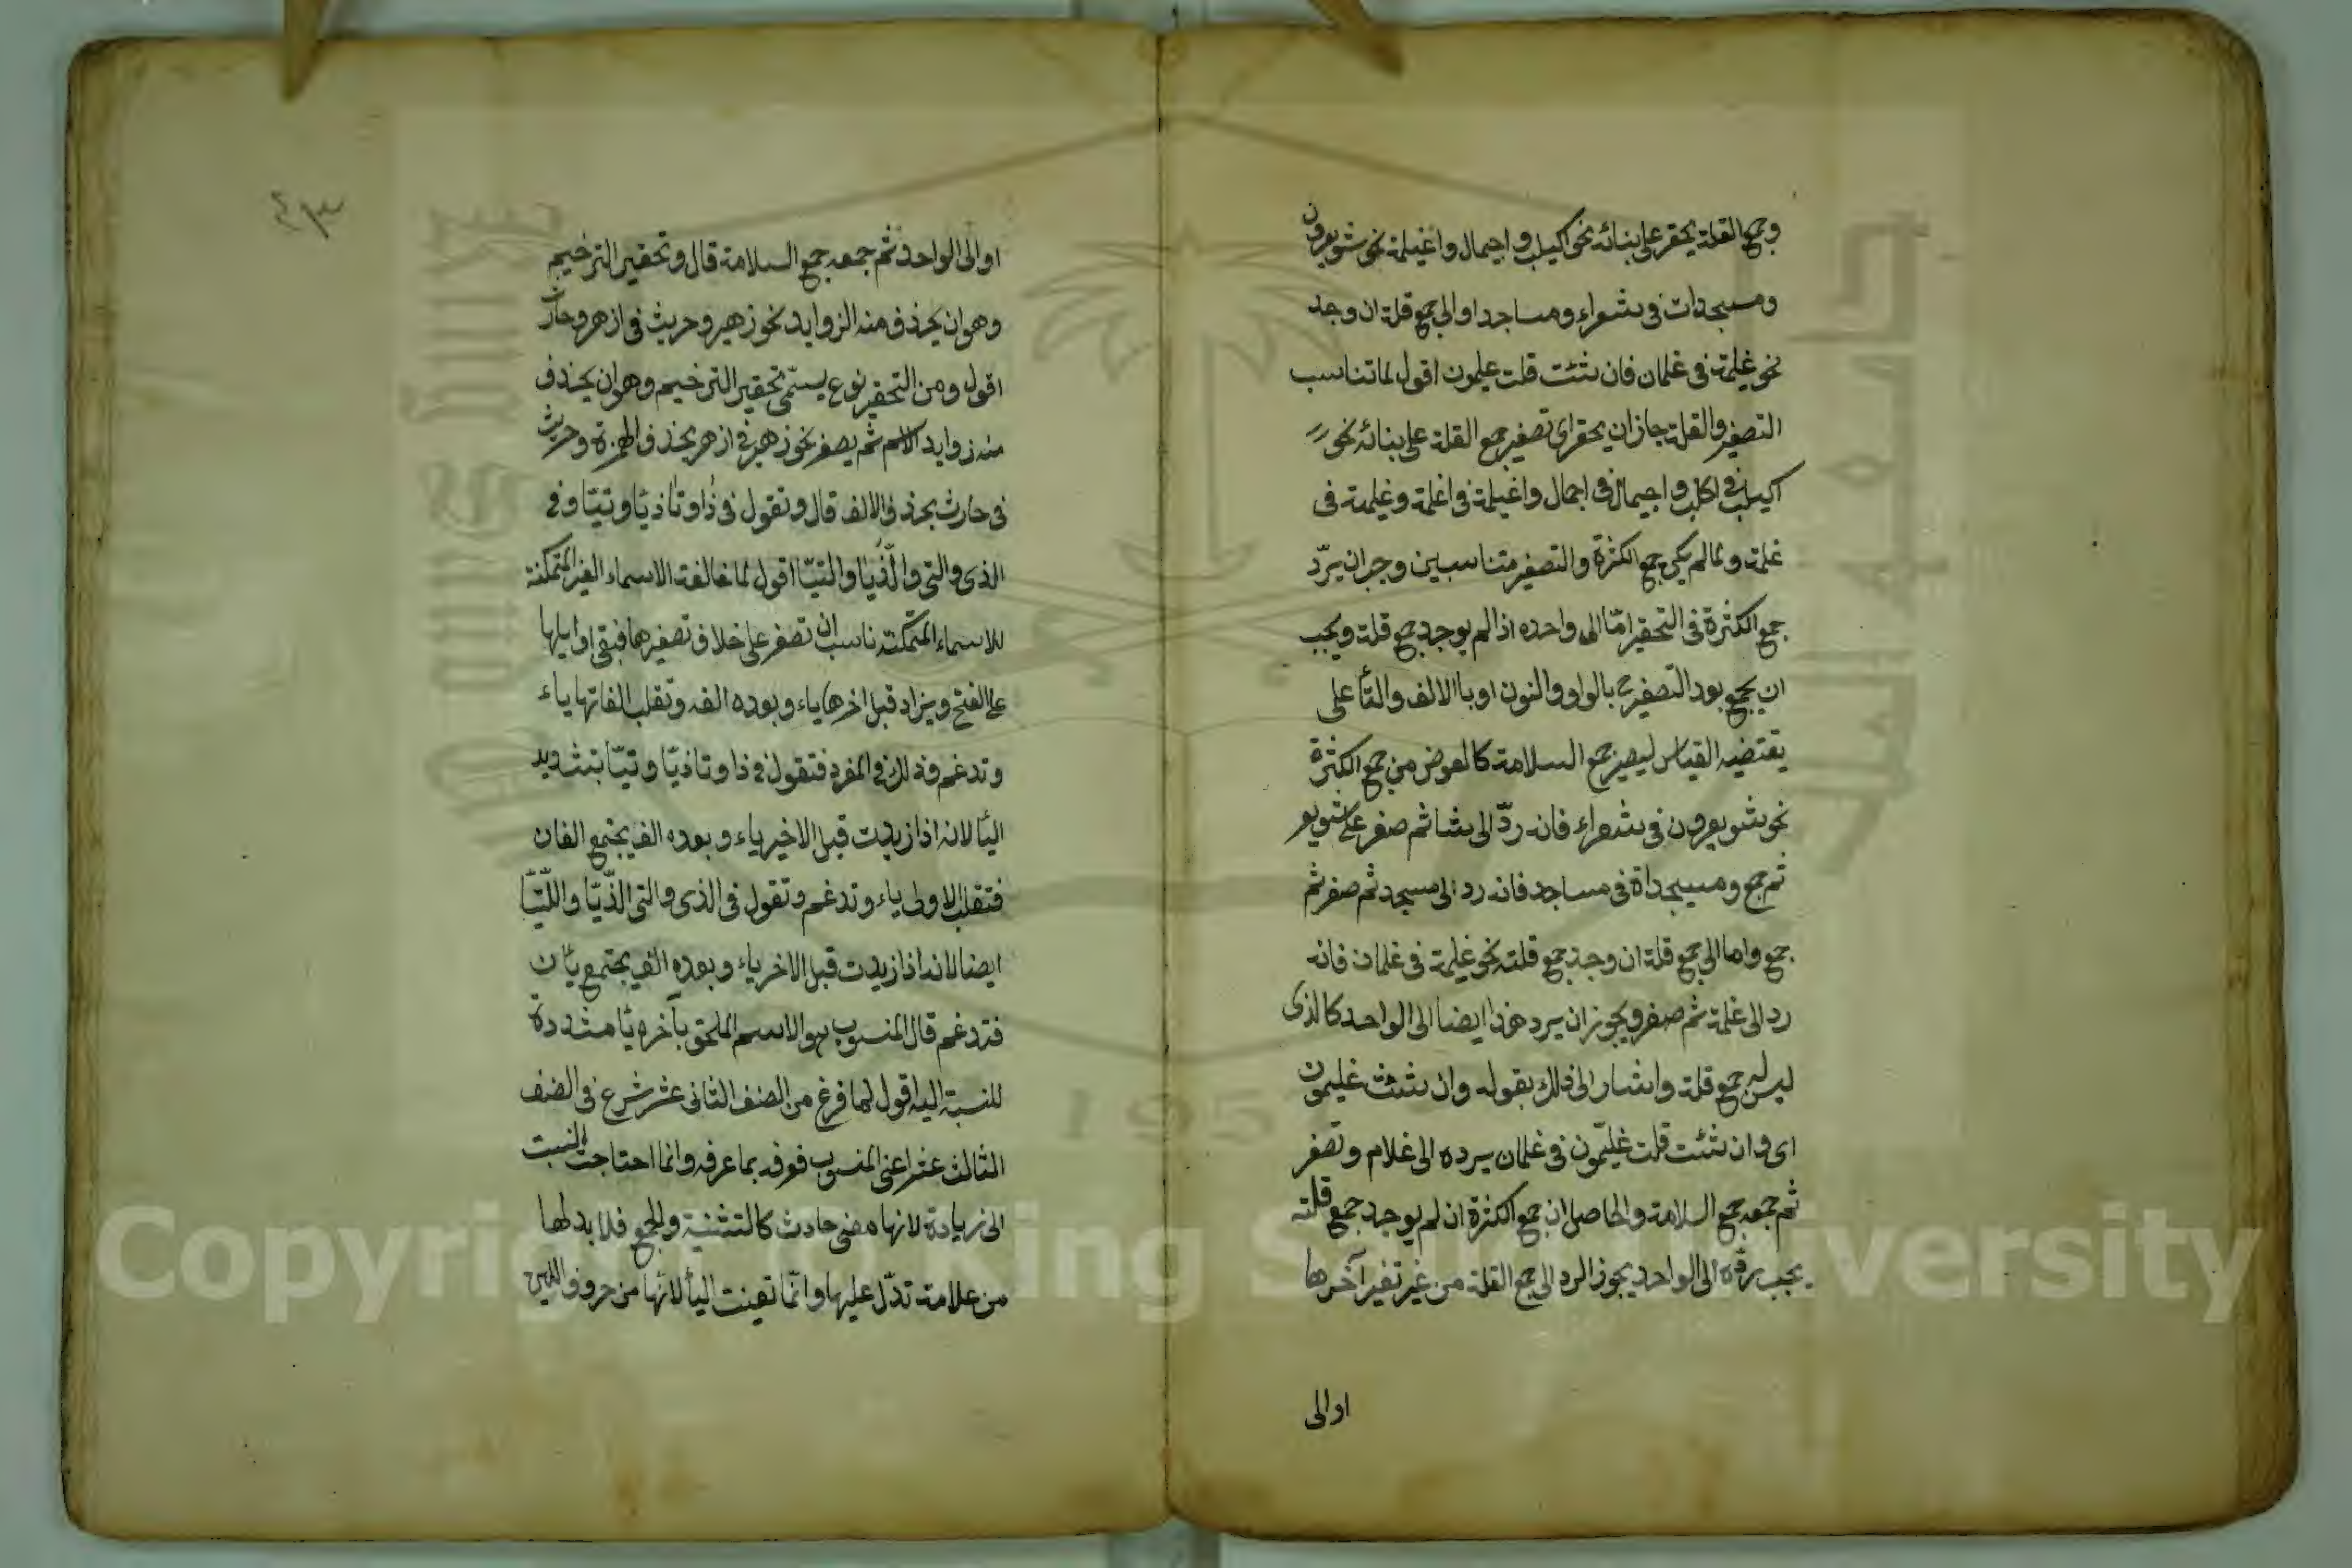 وجمع القلة يحقر على بنائه نحو اكيلب واجيمال واغيلمة نحو شويعرون
ومسيجدات في شعراء ومساجد او الى جمع قلة ان وجد
نحو غيلمة في غلمان فان شئت قلت غليمون اقول لما تناسب
التصغير والقلة جاز ان يحقر اى تصغير جمع القلة على بنائه نحو
اكيلب في اكلب واجيمال في اجمال واغيلمة في اغلمة وغليمة في
غلمة ولما لم يكن جمع الكثرة والتصغير متناسبين وجب ان يردّ
جمع الكثرة في التحقير امّا الى واحده اذا لم يوجد جمع قلة ويجب
ان يجمع بعد التصغير ح بالواو والنون او باالالف والتأ على
يقتضيه القياس ليصير جمع السلامة كالعوض من جمع الكثرة
نحو شويعرون في شعراء فانه ردّ الى شا ثم صغر على شويعر
ثم جمع ومسيجداة في مساجد فانه رد الى مسجد ثم صغر ثم
جمع واما الى جمع قلة ان وجد جمع قلته نحو غليمة في غلمان فانه
رد الى غلمة ثم صغر ويجوز ان يرد هذا ايضا الى الواحد كالذى
ليس له جمع قلة واشار الى ذلك بقوله وان شئت غليمون
اى وان شئت قلت غليّمون في غلمان يرده الى غلام وتصغر
ثم جمعه جمع السلامة والحاصل ان جمع الكثرة ان لم يوجد جمع قلته
يجب ردّه الى الواحد يجوز الرد الى جمع القلة من غير تغير آخرها
او الى
٤٣
او الى الواحد ثم جمعه جمع السلامة قال وتحقير الترخيم
وهو ان يحذف منه الزوايد نحو زهير وحريث في ازهر وحارث
اقول ومن التحقير نوع يسمّى تحقير الترخيم وهو ان يحذف
منه زوايد الاسم ثم يصغر نحو زهير في ازهر بحذف الهمزة وحريث
في حارث بحذف الالف قال وتقول في ذا وتا ذيّا وتيّا وفي
الذى والتي والّذيّا والتيّا اقول لما خالفت الاسماء الغير المتمكنة
للاسماء المتمكنة ناسب ان تصغر على خلاف تصغيرها فبقى اوايلها
على الفتح ويزاد قبل اخرها ياء وبعده الف وتقلب الفاتها ياء
وتدغم وذلك في المفرد فتقول في ذا وتا ذيّا وتيّا بتشديد
اليأ لانه اذا زيدت قبل الاخير ياء وبعده الف يجتمع الفان
فتقلب الاولى ياء وتدغم وتقول في الذى والتى الذّيّا واللّتيّا
ايضا لانه اذا زيدت قبل الاخر ياء وبعده الف يجتمع يأان
فتدغم قال المنسوب هو الاسم الملحق بآخره يأ مشددة
للنسبة اليه اقول لما فرغ من الصنف الثانى عشر شرع في الصنف
الثالث عشر اعنى المنسوب فعرفه بما عرفه وانما احتاجت النسبت
الى زيادة لانها معنى حادث كالتثنية والجمع فلا بد لها
من علامة تدّل عليها وانّما تعينت اليأ لانّها من حروف اللين